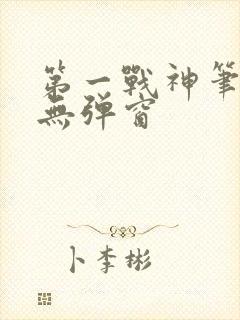 第一戰神筆
無彈窗
卜李彬